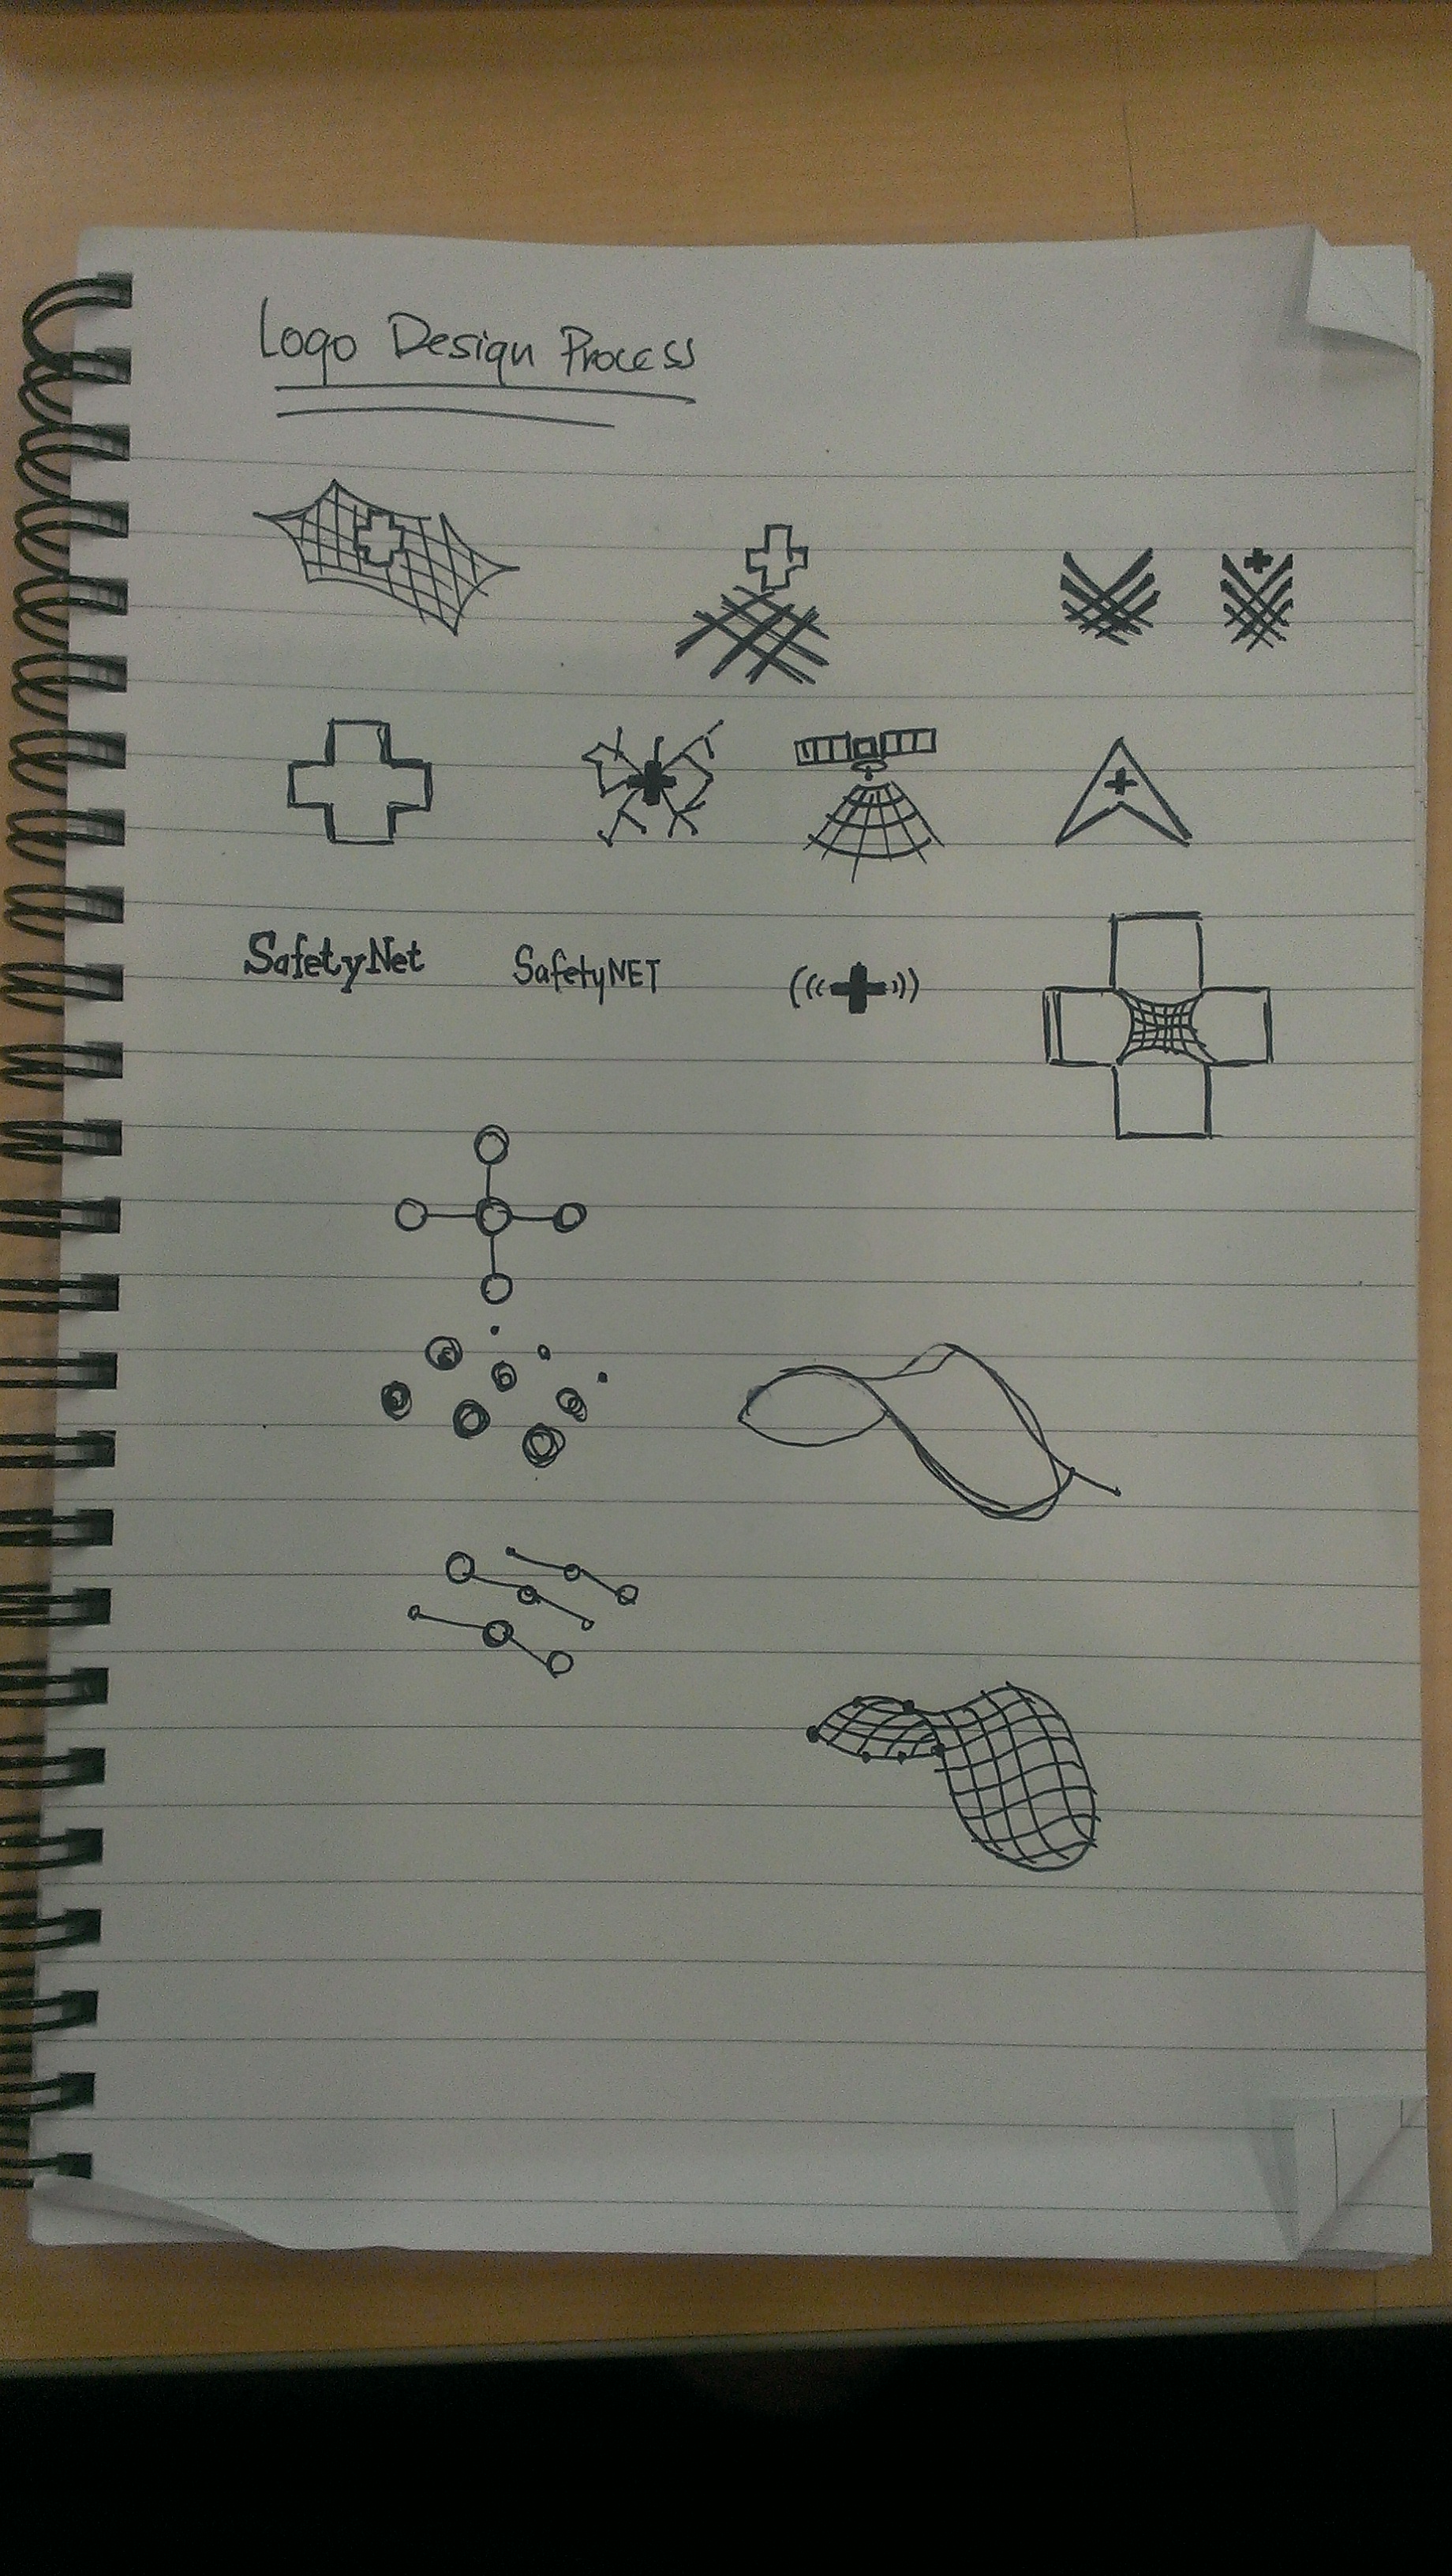 Logo Design Process
SafetyNet SafetyNET